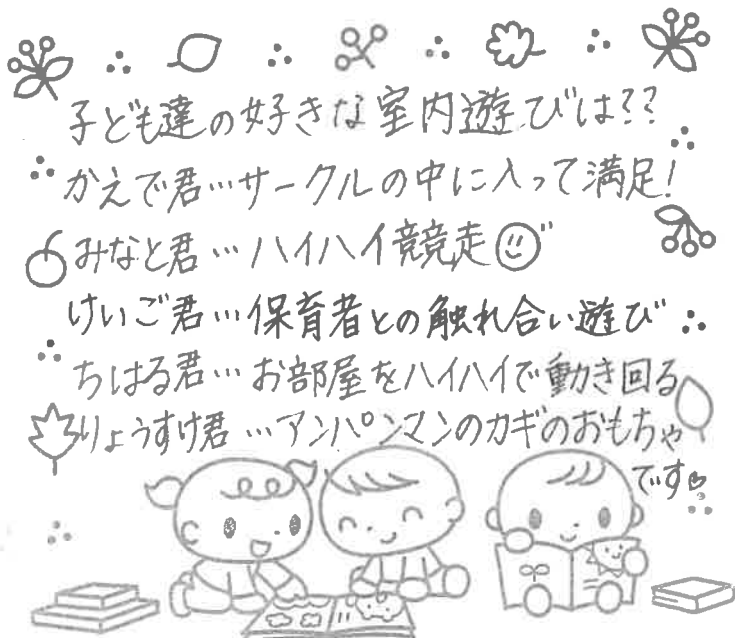 子ども達の好きな室内遊びは??
かえで君…サークルの中に入って満足!
みなと君…ハイハイ競走
けいご君…保育者との触れ合い遊び
ちはる君…お部屋をハイハイで動き回る
りょうすけ君…アンパンマンのカギのおもちゃ
です